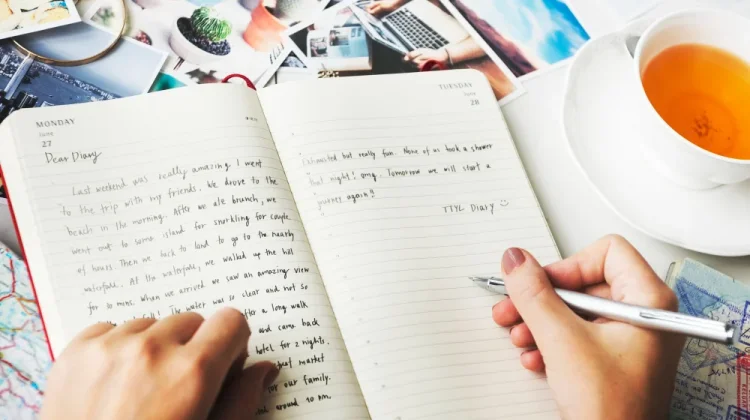 MONDAY
June
27
Dear Diary
Last weekend was really amazing. I went
to the trip with my friends. We drove to the
beach in the morning. After we ate brunch, we
went out to some island for snorkling for couple
of hours. Then we back to land to go to the nearby
waterfall. At the waterfall, we walked up the hill
for 30 mins. When we arrived we saw an amazing view
The water was so clear and not so
after a long walk
and came back
hotel for 2 nights.
market
for our family.
around 10 pm.
TUESDAY
June
28
Exhausted but really fun. None of us took a shower
that night! omg. Tomorrow we will start a
journey again!!
TTYL Diary